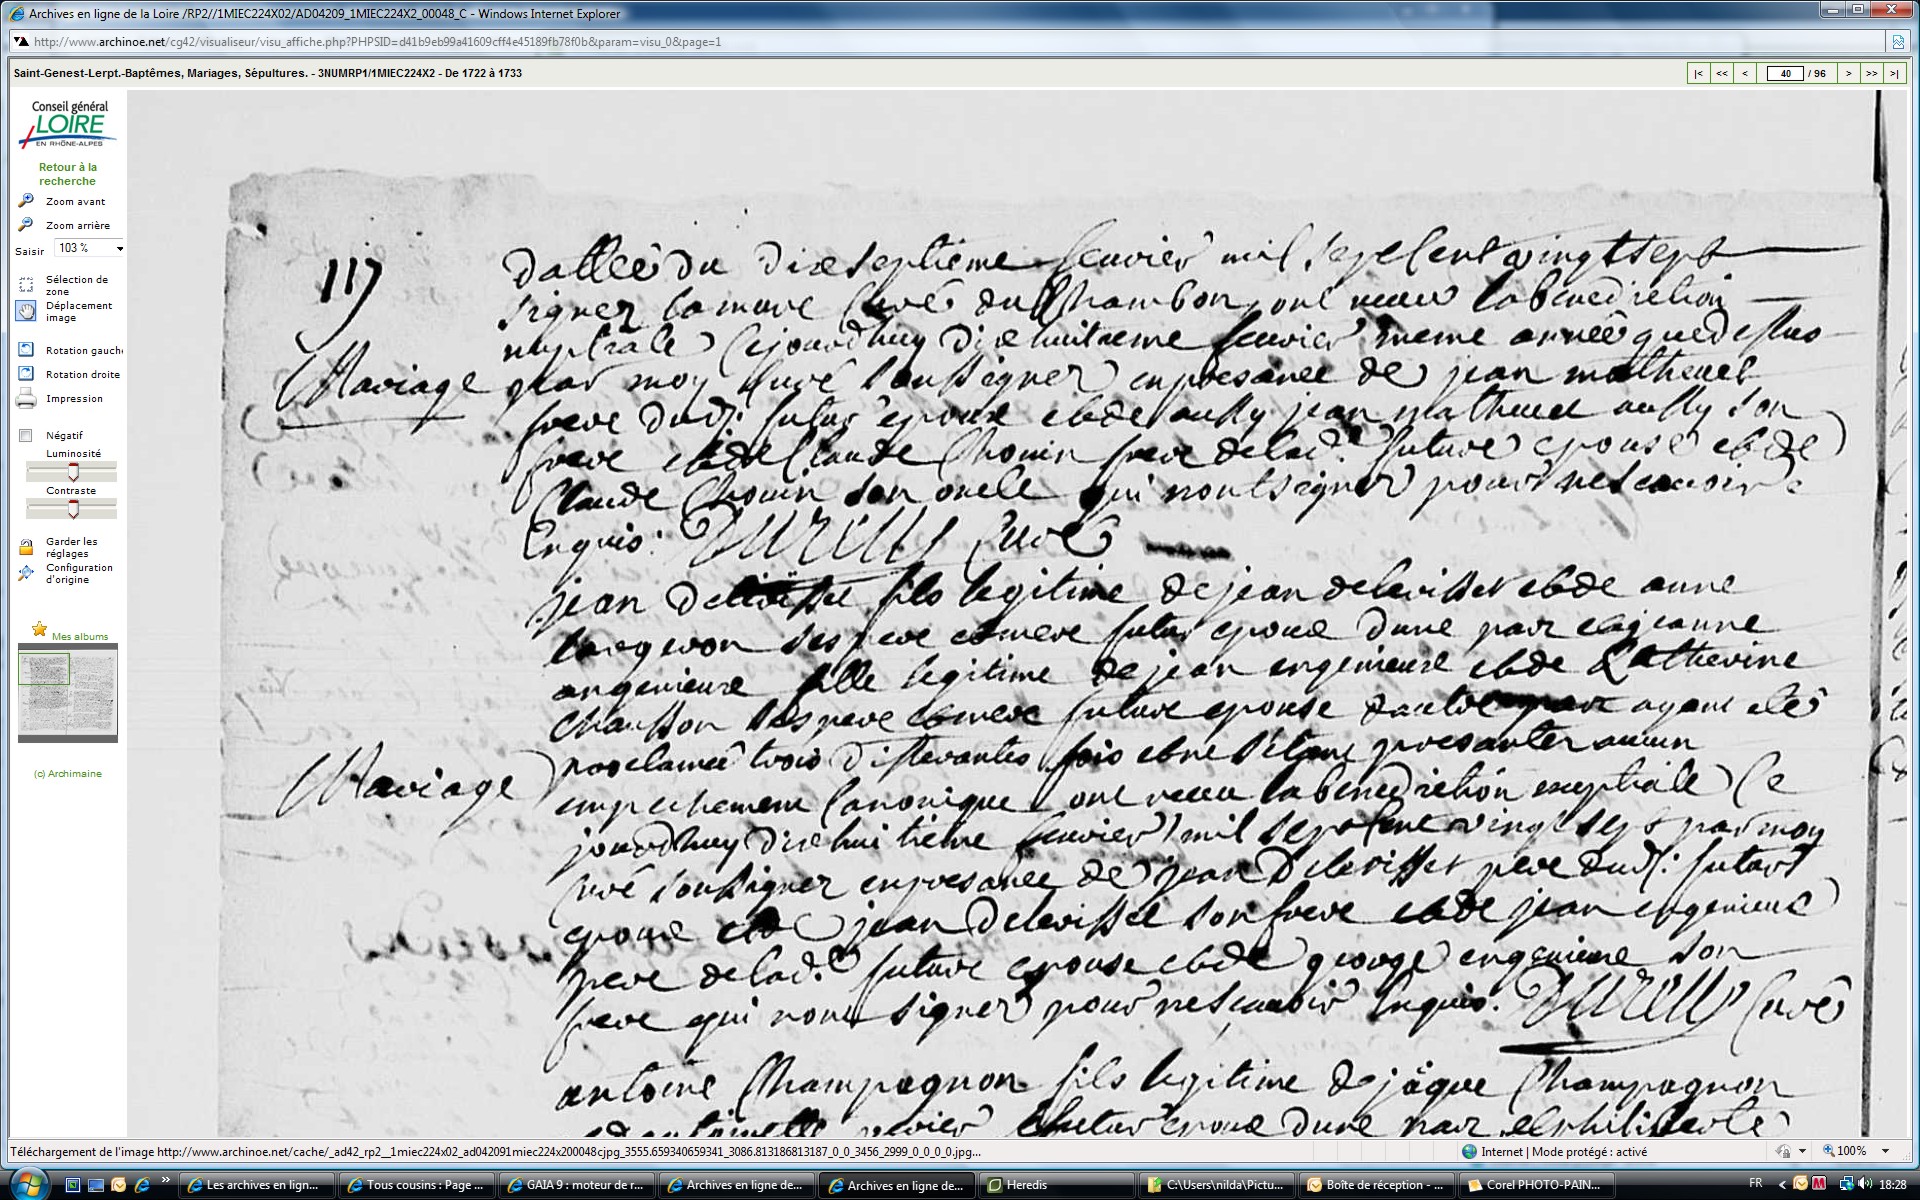 Archives en ligne de la Loire /RP2//1MIEC224X02/AD04209_1MIEC224X2_00048_C - Windows Internet Explorer
http://www.archinoe.net/cg42/visualiseur/visu_affiche.php?PHPSID=d41b9eb99a41609cff4e45189fb78f0b&param=visu_0&page=1
Saint-Genest-Lerpt.-Baptêmes, Mariages, Sépultures. - 3NUMRP1/1MIEC224X2 - De 1722 à 1733
|< << < 40 / 96 > >> >|
Conseil général
LOIRE
EN RHÔNE-ALPES
Retour à la
recherche
Zoom avant
Zoom arrière
Saisir 103 %
Sélection de
zone
Déplacement
image
Rotation gauch
Rotation droite
Impression
Négatif
Luminosité
Contraste
Garder les
réglages
Configuration
d'origine
Mes albums
(c) Archimaine
117
dattee du dixseptieme feuvier mil sept cent vingt sept
signer lamure curé du Chambon, ont receu la benediction
nuptiale cejourdhuy dixhuitieme feuvier meme année que dessus
Mariage
par moy curé soussigner en presance de jean mathevet
frere dud. futur epoux et de aussy jean mathevet aussy son
frere et de Claude Chouin frere de lad. future epouse et de
Claude Chouin son oncle qui nont signer pour ne scavoir
Enquis. Dureuil Curé
jean fils legitime de jean delavisset et de anne
ses pere et mere futur epoux dune part et jeanne
angenieure fille legitime de jean engenieure et de Catherine
Chausson ses pere et mere future epouse dautre part ayant été
proclamé trois differantes fois et ne setant presanter aucun
empechement Canonique ont receu la benediction nuptiale Ce
Mariage
jourdhuy dixhuitieme feuvier mil sept cent vingt sept par moy
curé soussigner en presance de jean Delavisset pere dud. futur
epoux et de jean Delavisset son frere et de jean engenieure
pere de lad. future epouse et de george engenieure son
frere qui nont signer pour ne scavoir Enquis. Dureuil Curé
antoine Champagnon fils legitime de jaque Champagnon
futur epoux dune part
Téléchargement de l'image http://www.archinoe.net/cache/_ad42_rp2__1miec224x02_ad042091miec224x200048cjpg_3555.659340659341_3086.813186813187_0_0_3456_2999_0_0_0_0.jpg...
Internet | Mode protégé : activé
100%
Les archives en lign...
Tous cousins : Page ...
GAIA 9 : moteur de r...
Archives en ligne de...
Archives en ligne de...
Heredis
C:\Users\nilda\Pictu...
Boîte de réception - ...
Corel PHOTO-PAIN...
FR
18:28